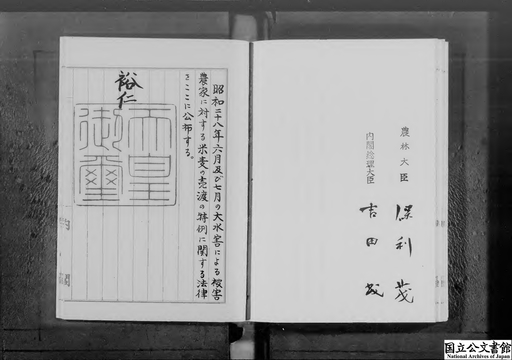 昭和二十八年六月及び七月の大水害による被害
農家に対する米麦の売渡の特例に関する法律
をここに公布する。
裕仁
天皇
御璽
農林大臣
保利茂
内閣総理大臣
吉田茂
国立公文書館
National Archives of Japan